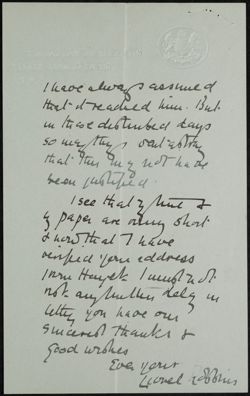 I have always assumed
that it reached him. But
in those disturbed days
so many things went astray
that this may not have
been justified.
I see that my time &
my paper are running short
& now that I have
verified your address
from Hayek I must not
risk any further delay in
letting you have our
sincerest thanks &
good wishes
Ever yours
Lionel Robbins